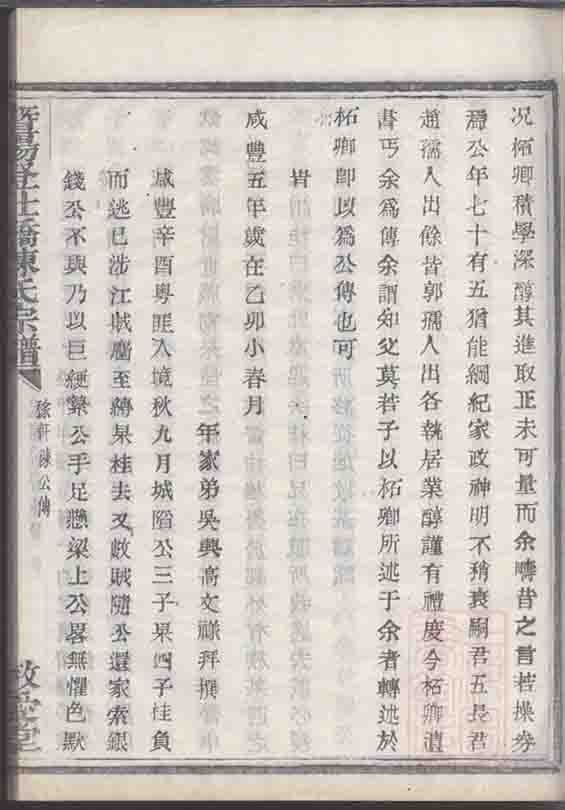 况柘卿積學深醇其進取正未可量而余疇昔之言若操券
焉公年七十有五猶能綱紀家政神明不稍衰嗣君五長君
趙孺人出餘皆郭孺人出各執居業醇謹有禮慶今柘卿遺
書丐余爲傳余謂知父莫若子以柘卿所述于余者轉述於
柘卿卽以爲公傳也可
旹
咸豐五年歲在乙卯小春月
年家弟吳興高文祿拜撰
咸豐辛酉粵匪入境秋九月城陷公三子杲四子桂負
而逃已涉江賊麕至縛杲桂去又數賊隨公還家索銀
錢公不與乃以巨綆繫公手足懸梁上公畧無懼色默
暨陽土橋陳氏宗譜
稼軒陳公傳
堂